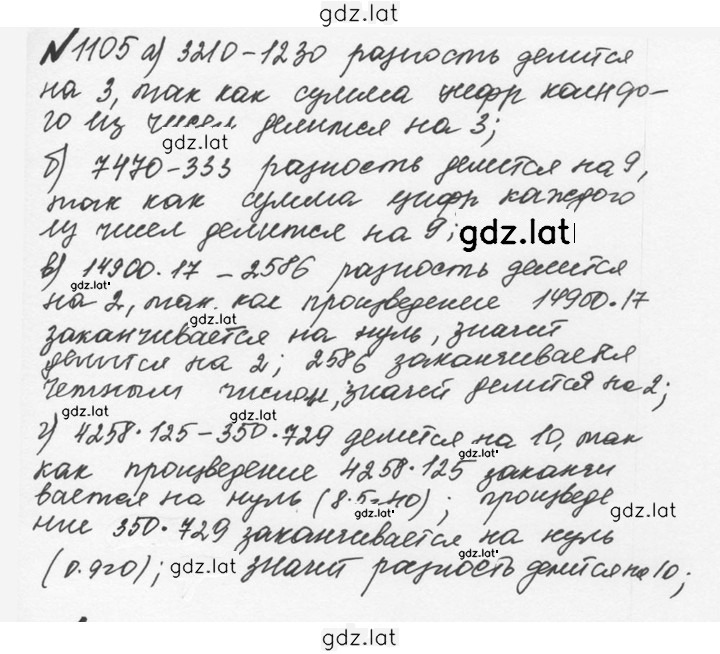 gdz.lat
№1105 а) 3210-1230 разность делится
на 3, так как сумма цифр каждо-
го из чисел делится на 3;
gdz.lat
б) 7470-333 разность делится на 9,
так как сумма цифр каждого
из чисел делится на 9; gdz.lat
в) 14900·17 - 2586 разность делится
gdz.lat
на 2, так как произведение 14900·17
gdz.lat
заканчивается на нуль, значит
делится на 2; 2586 заканчивается
четным числом, значит делится на 2;
gdz.lat gdz.lat
г) 4258·125-350·729 делится на 10, так
как произведение 4258·125 заканчи
gdz.lat
вается на нуль (8·5=40); произведе
gdz.lat gdz.lat
ние 350·729 заканчивается на нуль
gdz.lat
(0·9=0); gdz.lat значит разность делится на 10;
gdz.lat